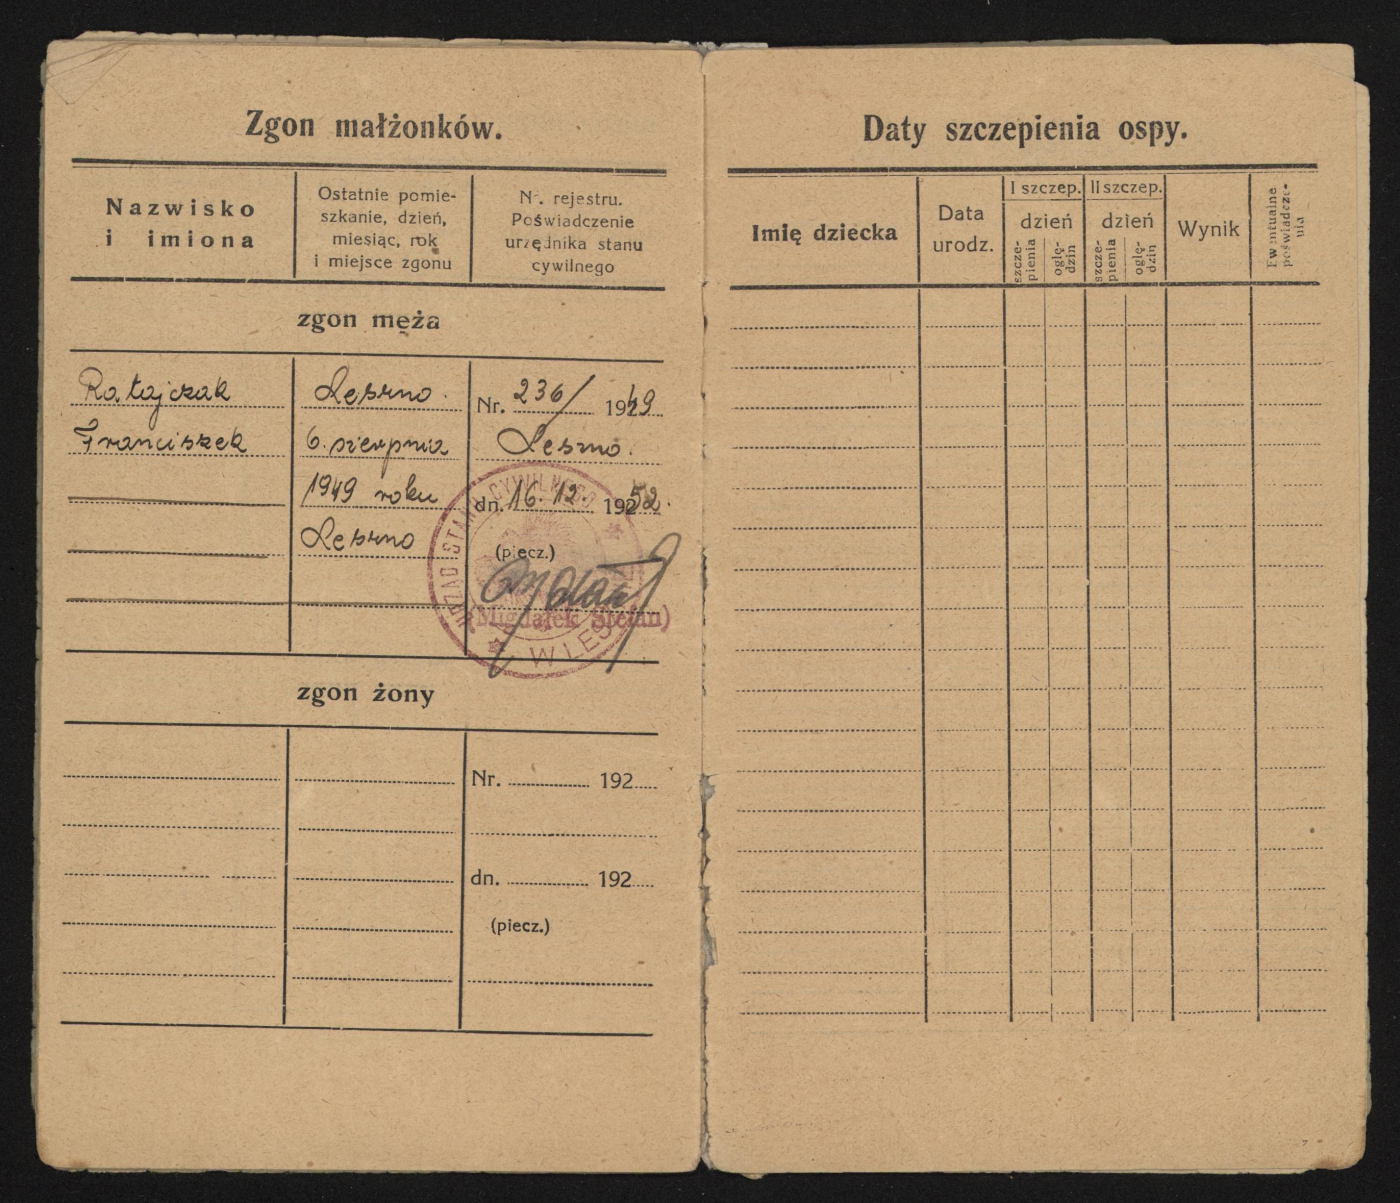 Zgon małżonków.
Nazwisko
i imiona
Ostatnie pomie-
szkanie, dzień,
miesiąc, rok
i miejsce zgonu
Nr. rejestru.
Poświadczenie
urzędnika stanu
cywilnego
zgon męża
Ratajczak
Franciszek
Leszno.
6. sierpnia
1949 roku
Leszno
Nr. 236/ 1949
Leszno.
dn. 16. 12. 1952.
(piecz.)
URZĄD STANU CYWILNEGO
W LESZ
(Migdałek Stefan)
zgon żony
Nr. 192
dn. 192
(piecz.)
Daty szczepienia ospy.
Imię dziecka
Data
urodz.
I szczep.
dzień
szcze-
pienia
oglę-
dzin
II szczep.
dzień
szcze-
pienia
oglę-
dzin
Wynik
Ewentualne
poświadcze-
nia